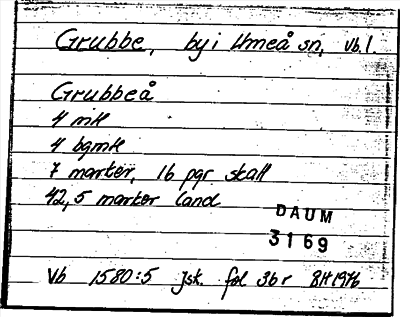 Grubbe, by i Umeå sn, Vb.l.
Grubbeå
4 mtl
4 bgmtl
7 marker, 16 pgr skatt
42,5 marker land
DAUM
3169
Vb 1580:5 Jsk. fol 36 r BH 1976